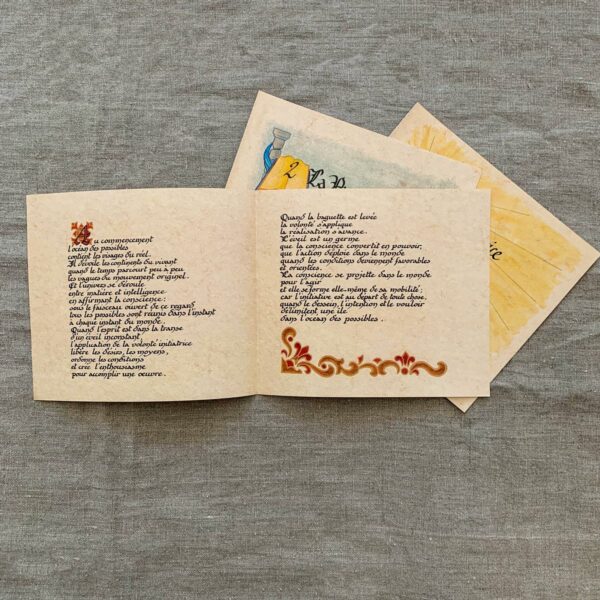 Au commencement
l'océan des possibles
contient les visages du réel.
Il dévoile les continents du vivant
quand le temps parcourt peu a peu
les vagues du mouvement originel.
Et l'univers se déroule
entre matière et intelligence
en affirmant la conscience :
sous le faisceau ouvert de ce regard
tous les possibles sont réunis dans l'instant
à chaque instant du monde.
Quand l'esprit est dans la transe
d'un éveil inconstant,
l'application de la volonté initiatrice
libère les désirs, les moyens,
ordonne les conditions
et crée l'enthousiasme
pour accomplir une oeuvre.
Quand la baguette est levée
la volonté s'applique
la réalisation s'avance.
L'éveil est un germe
que la conscience convertit en pouvoir,
que l'action déploie dans le monde
quand les conditions deviennent favorables
et orientées.
La conscience se projette dans le monde
pour l'agir
et elle se forme elle-même de sa mobilité;
car l'initiative est au départ de toute chose,
quand le dessein, l'intention, elle vouloir
délimitent une île
dans l'océan des possibles.
2
La P
ice